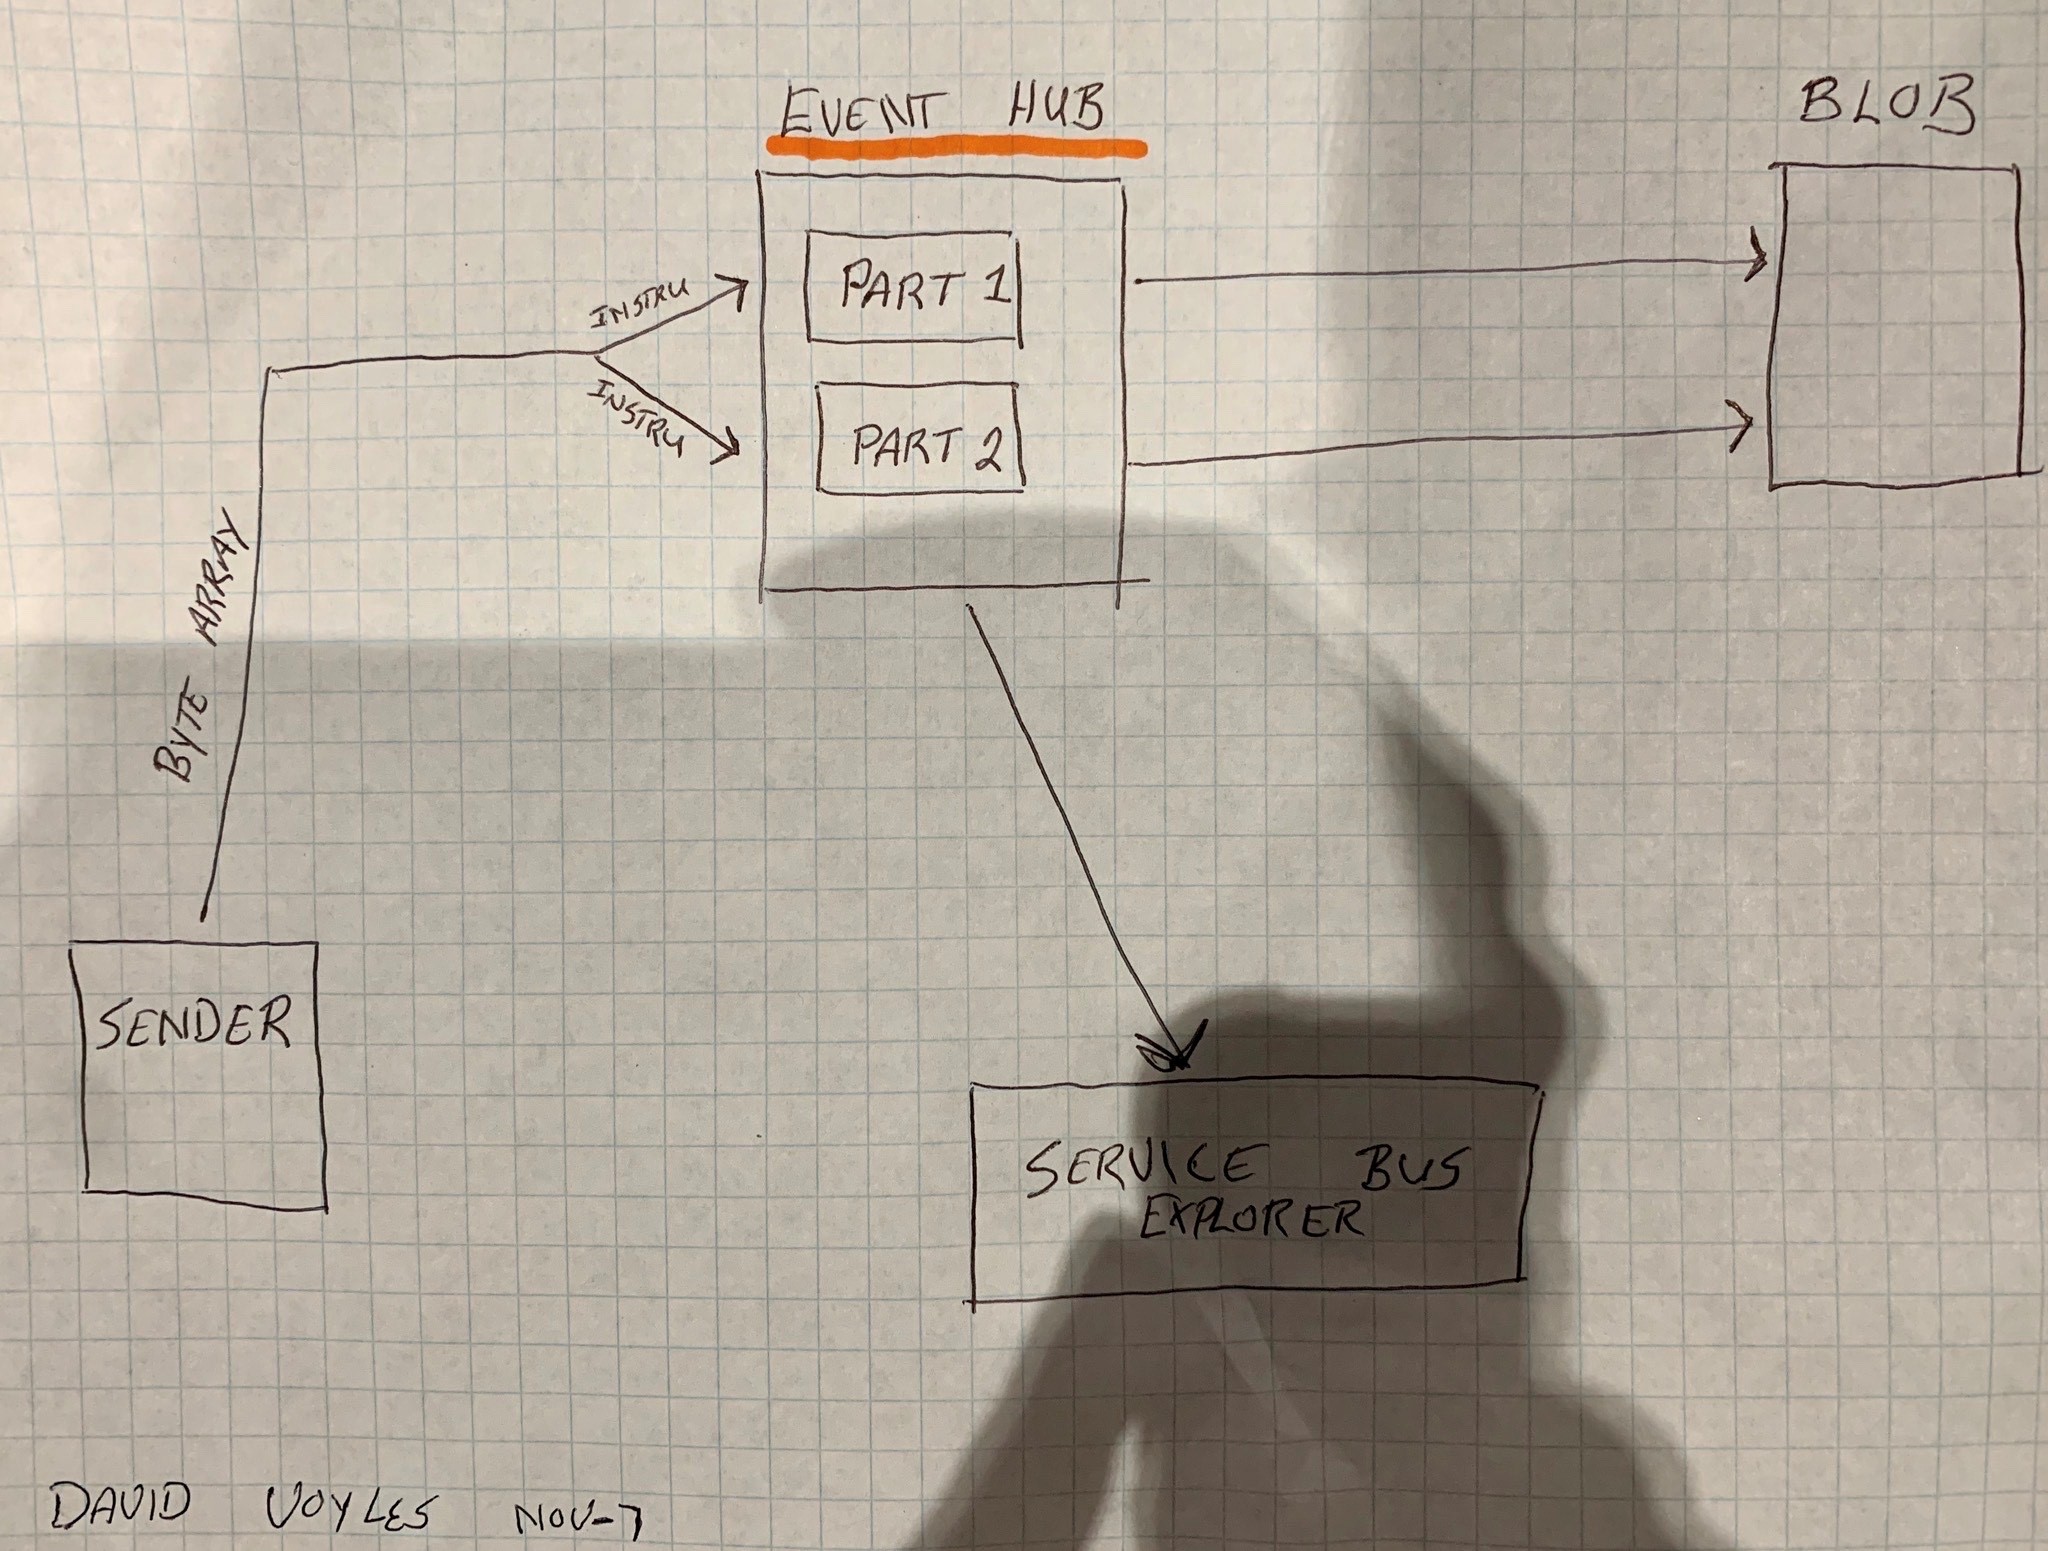 EVENT HUB
BLOB
PART 1
INSTRU
PART 2
INSTRU
BYTE ARRAY
SENDER
SERVICE BUS
EXPLORER
DAVID VOYLES NOV-7